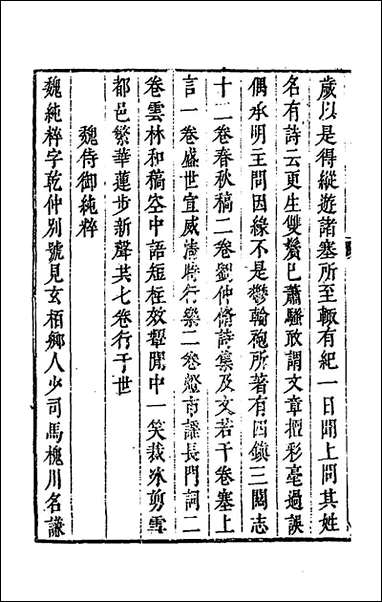 歲以是得縱遊諸塞所至輙有紀一日聞上問其姓
名有詩云更生雙鬢已蕭騷敢謂文章擅彩毫過誤
偶承明主問因緣不是鬱輪袍所著有四鎮三關志
十二卷春秋稿二卷劉仲脩詩集及文若干卷塞上
言一卷盛世宜威濟時行樂二卷燈市謡長門詞二
卷雲林和稿空中語短柱效顰閒中一笑裁冰剪雪
都邑繁華蓮步新聲共七卷行于世
魏侍御純粹
魏純粹字乾仲別號見玄栢鄉人少司馬槐川名謙